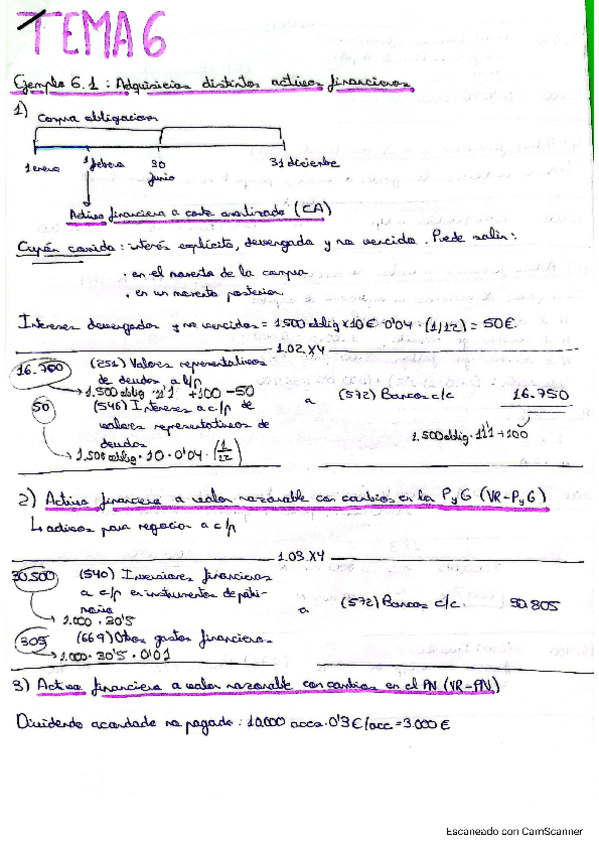 TEMA 6
Ejemplo 6.1: Adquisicion distintos activos financieros
1) Compra obligaciones
1 enero 1 febrero 30 junio 31 diciembre
Activo financiero a coste amortizado (CA)
Cupón corrido: interés explícito, devengado y no vencido. Puede salir:
· en el momento de la compra
· en un momento posterior
Intereses devengados y no vencidos = 1.500 oblig x 10€ · 0'04 · (1/12) = 50€
1.02.X4
16.750 (251) Valores representativos
de deudas a l/p a (572) Bancos c/c 16.750
→ 1.500 oblig · 11'1 + 100 - 50
50 (546) Intereses a c/p de
valores representativos de
deudas 1.500 oblig · 11'1 + 100
→ 1.500 oblig · 10 · 0'04 · (1/12)
2) Activo financiero a valor razonable con cambios en los PyG (VR-PyG)
↳ activos para negociar a c/p
1.03.X4
30.500 (540) Inversiones financieras
a c/p en instrumentos de patri-
monio a (572) Bancos c/c. 30.805
→ 1.000 · 30'5
305 (669) Otros gastos financieros
→ 1.000 · 30'5 · 0'01
3) Activo financiero a valor razonable con cambios en el PN (VR-PN)
Dividendo acordado no pagado: 10.000 accs · 0'3€/acc = 3.000€
Escaneado con CamScanner